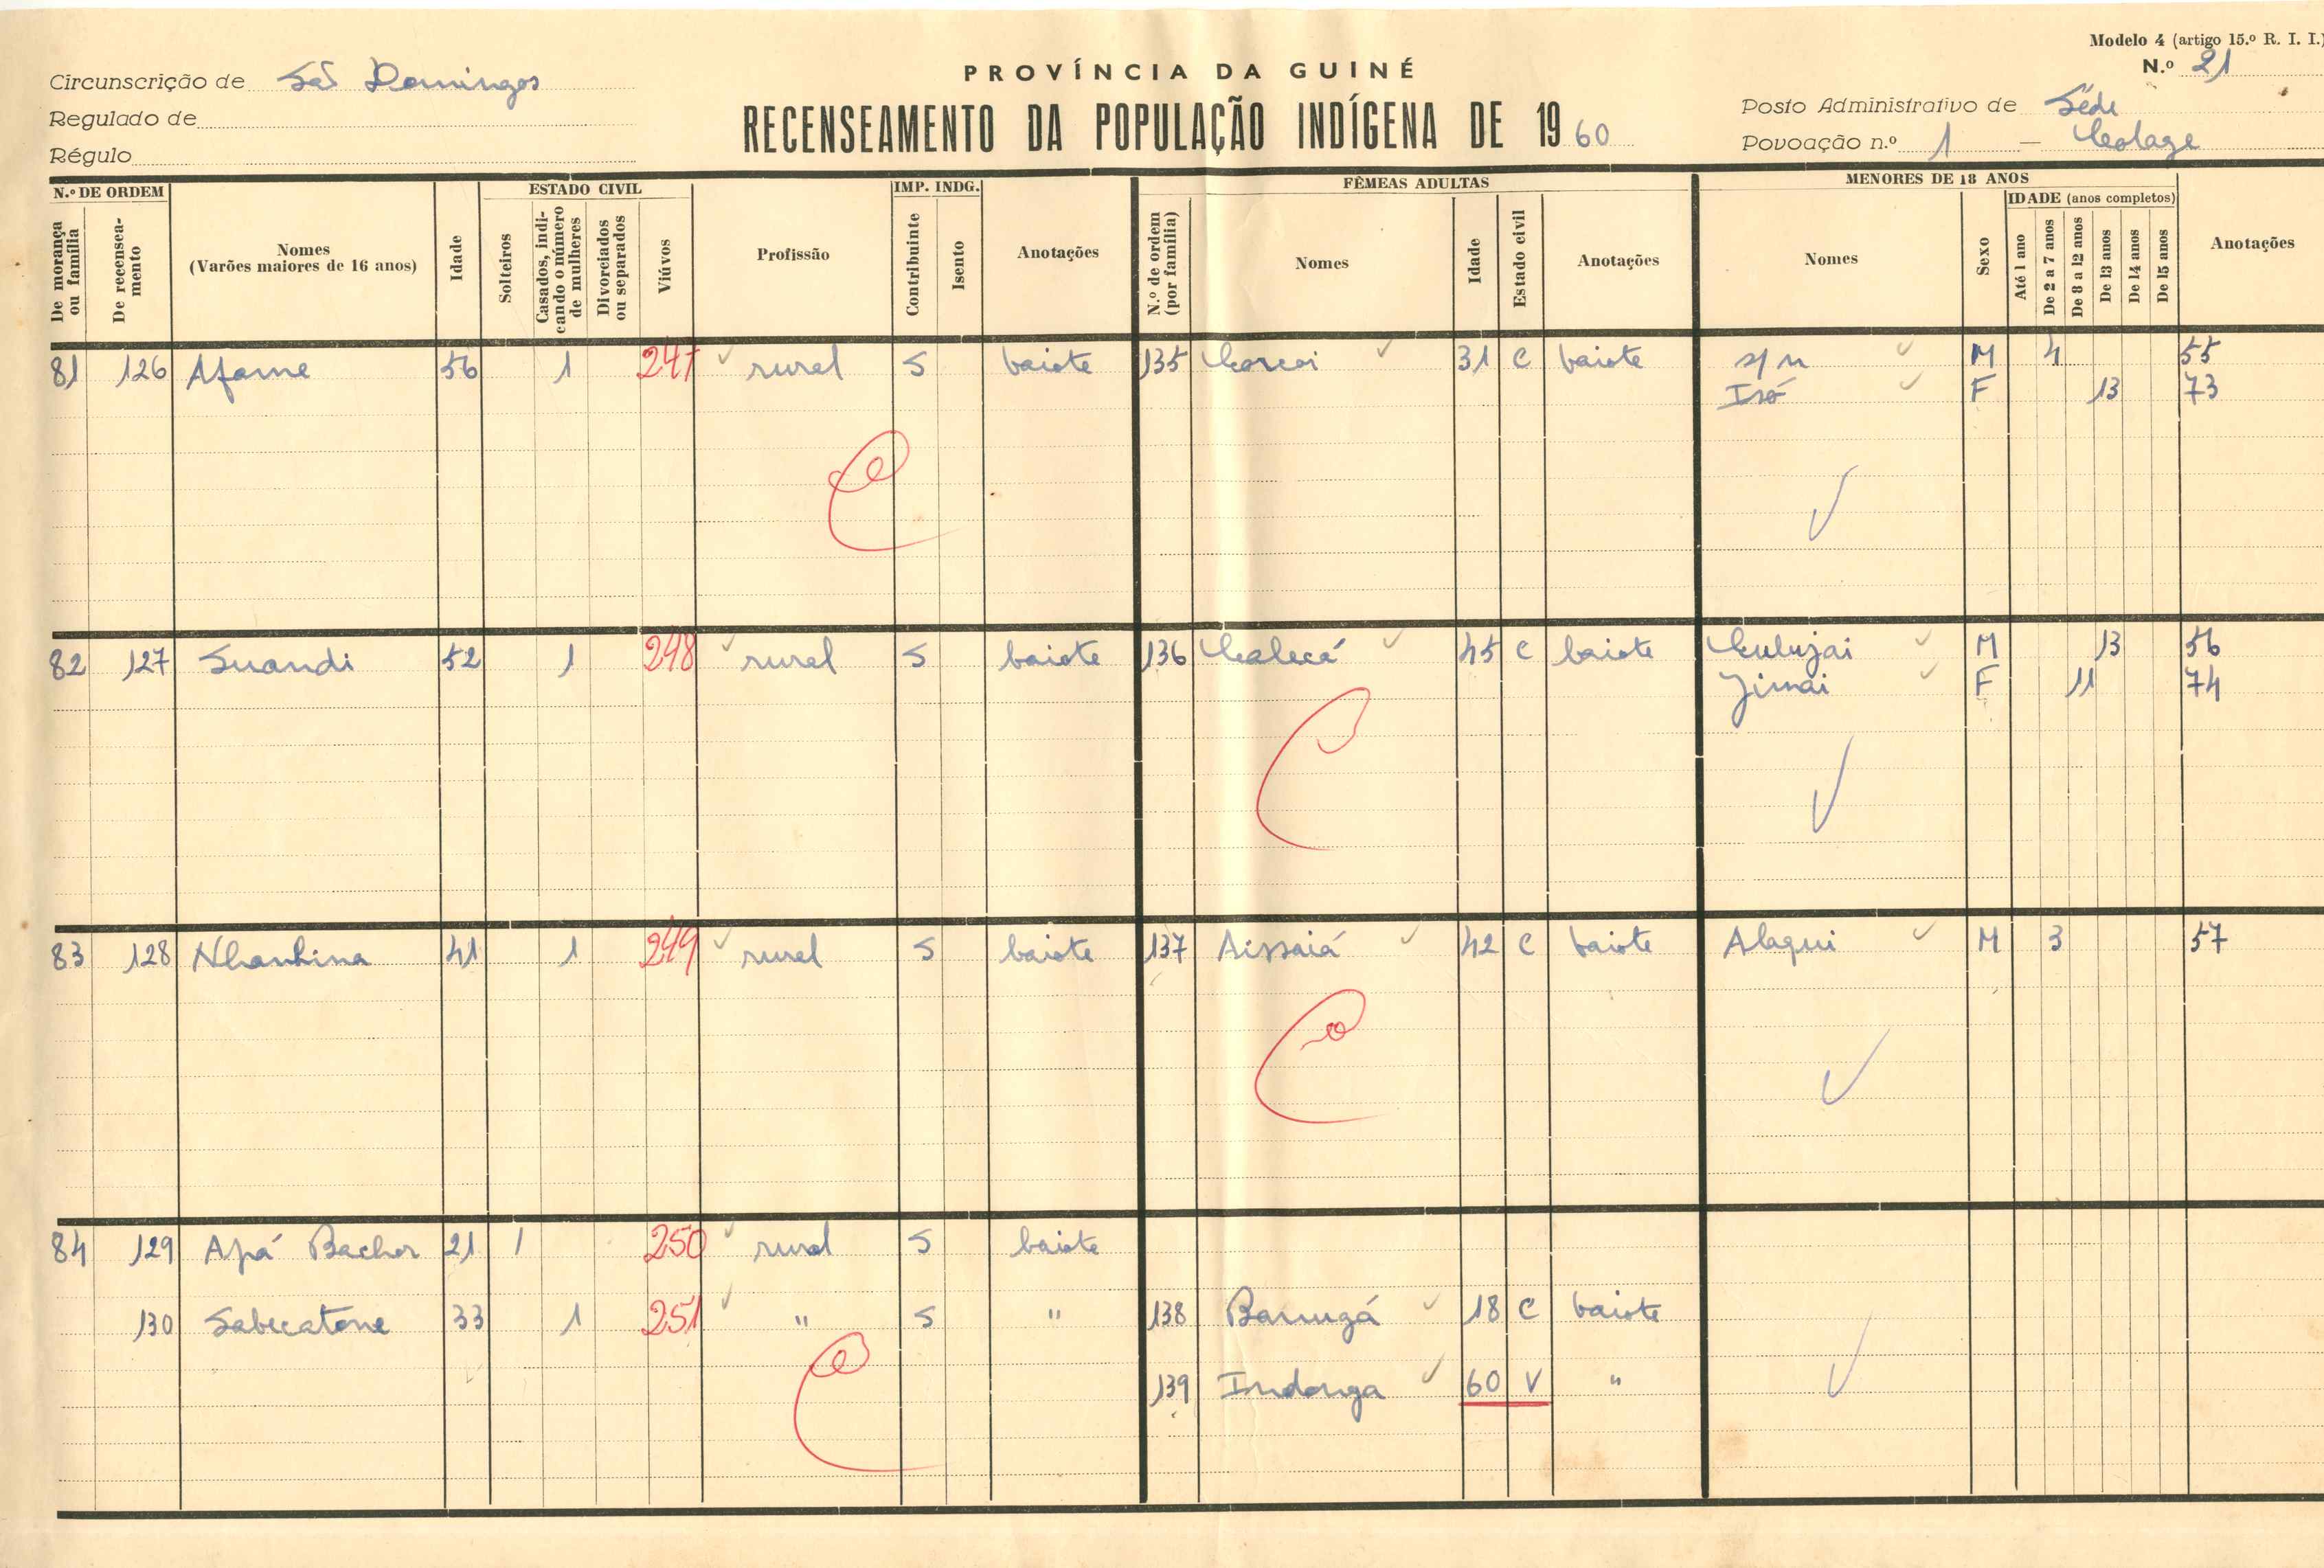 Modelo 4 (artigo 15.º R. I. I.)
N.º 21
PROVÍNCIA DA GUINÉ
RECENSEAMENTO DA POPULAÇÃO INDÍGENA DE 1960
Circunscrição de São Domingos
Regulado de
Régulo
Posto Administrativo de Séde
Povoação n.º 1 — Colage
N.º DE ORDEM
De morança ou família
De recenseamento
Nomes
(Varões maiores de 16 anos)
Idade
ESTADO CIVIL
Solteiros
Casados, indicando o número de mulheres
Divorciados ou separados
Viúvos
Profissão
IMP. INDG.
Contribuinte
Isento
Anotações
FÊMEAS ADULTAS
N.º de ordem (por família)
Nomes
Idade
Estado civil
Anotações
MENORES DE 18 ANOS
Nomes
Sexo
IDADE (anos completos)
Até 1 ano
De 2 a 7 anos
De 8 a 12 anos
De 13 anos
De 14 anos
De 15 anos
Anotações
81 126 Afame 56 1 247 rural S baiote 135 31 C baiote s/n M 4 55
Isó F 13 73
82 127 Suandi 52 1 248 rural S baiote 136 Calecá 45 C baiote Culujai M 13 56
Jimai F 11 74
83 128 Nhanhina 41 1 249 rural S baiote 137 Aissaiá 42 C baiote Alaqui M 3 57
84 129 Apá Bachor 21 1 250 rural S baiote
130 Sabecatone 33 1 251 " S " 138 Barugá 18 C baiote
139 Indonga 60 V "